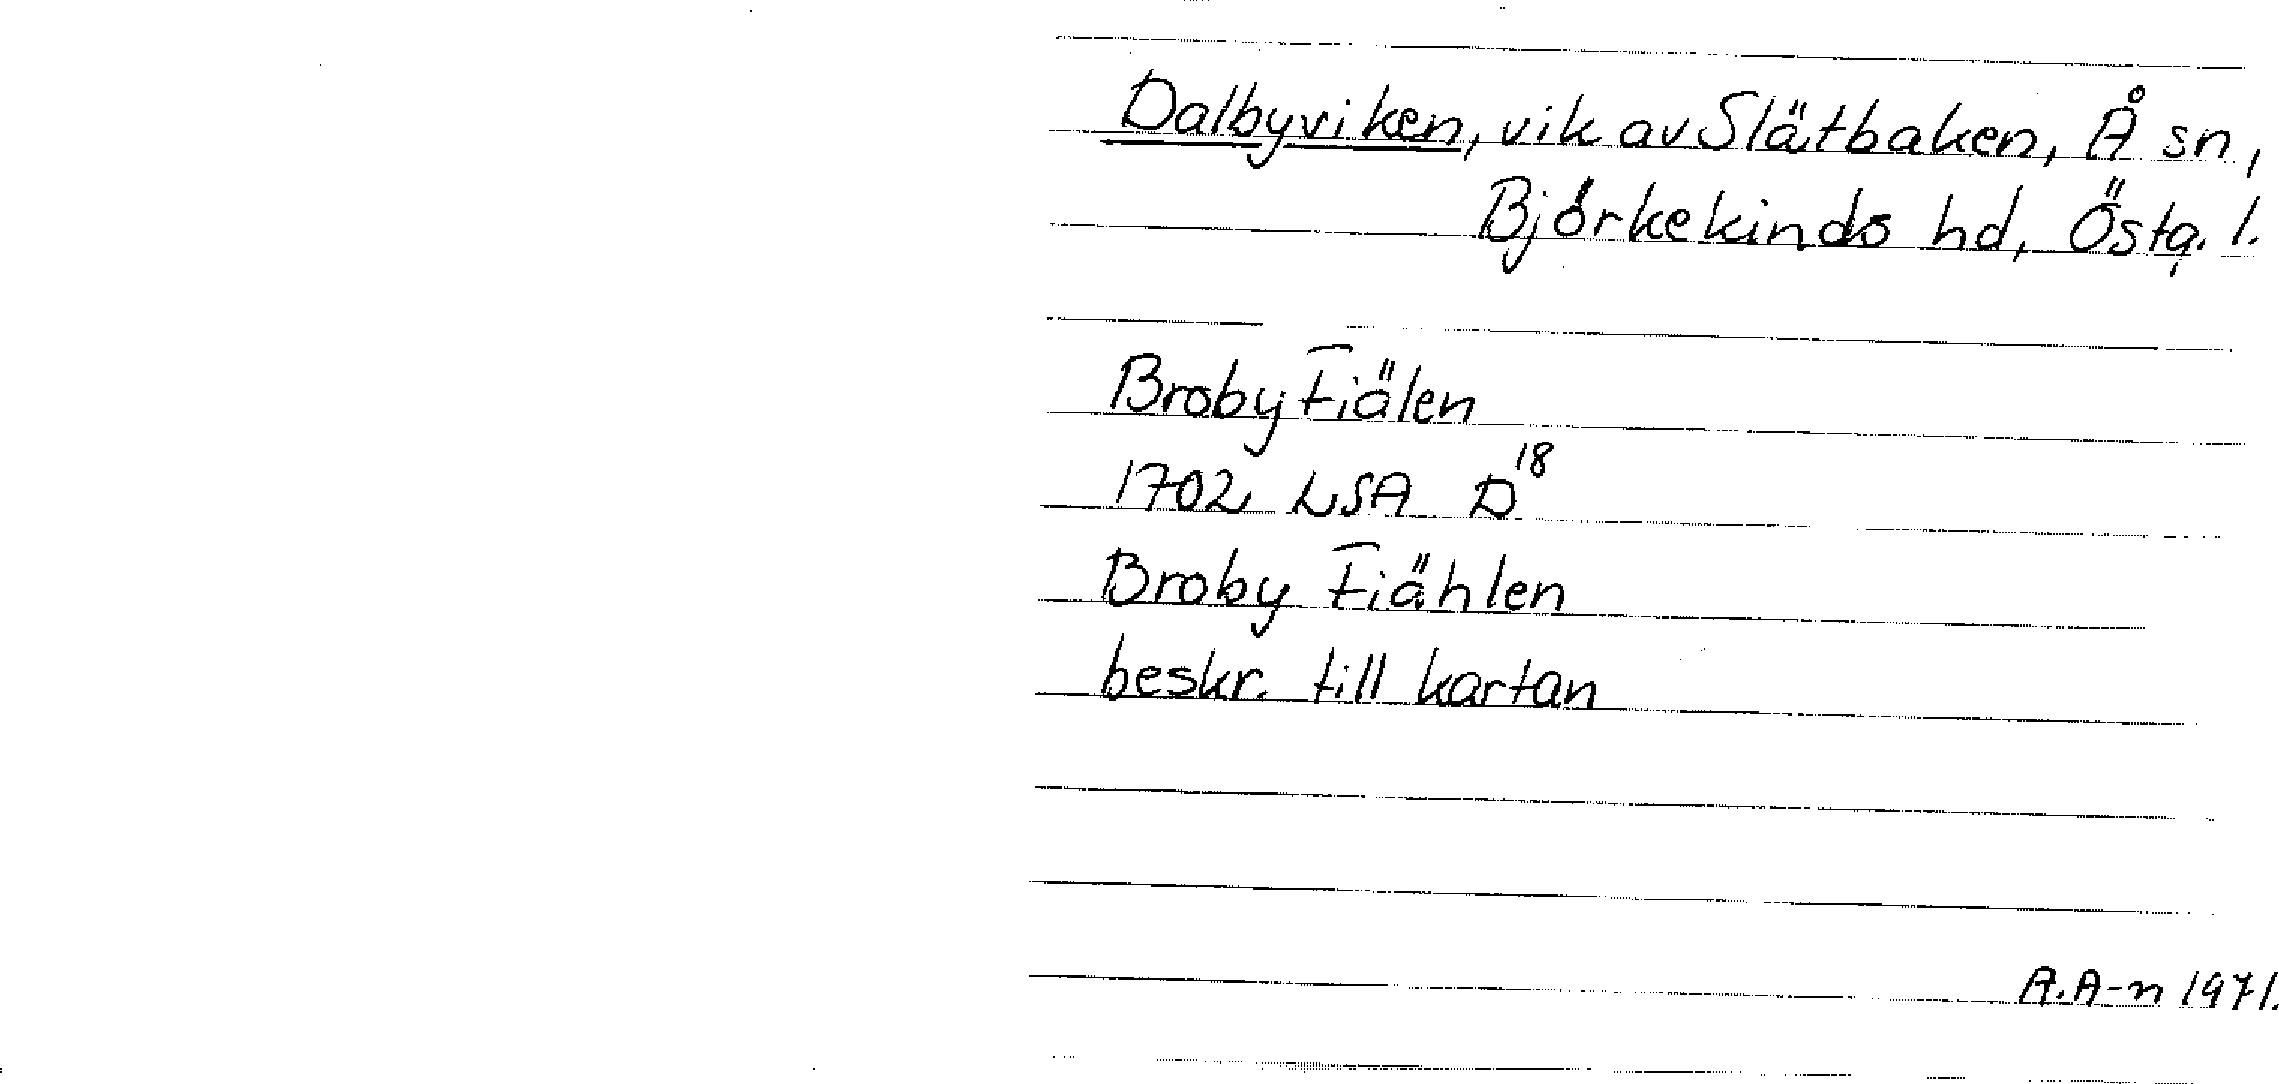 Dalbyviken, vik av Slätbaken, Å sn,
Björkekinds hd, Östg. l.
Broby Fiälen
1702 LSA D18
Broby Fiählen
beskr. till kartan
A.A-n 1971.